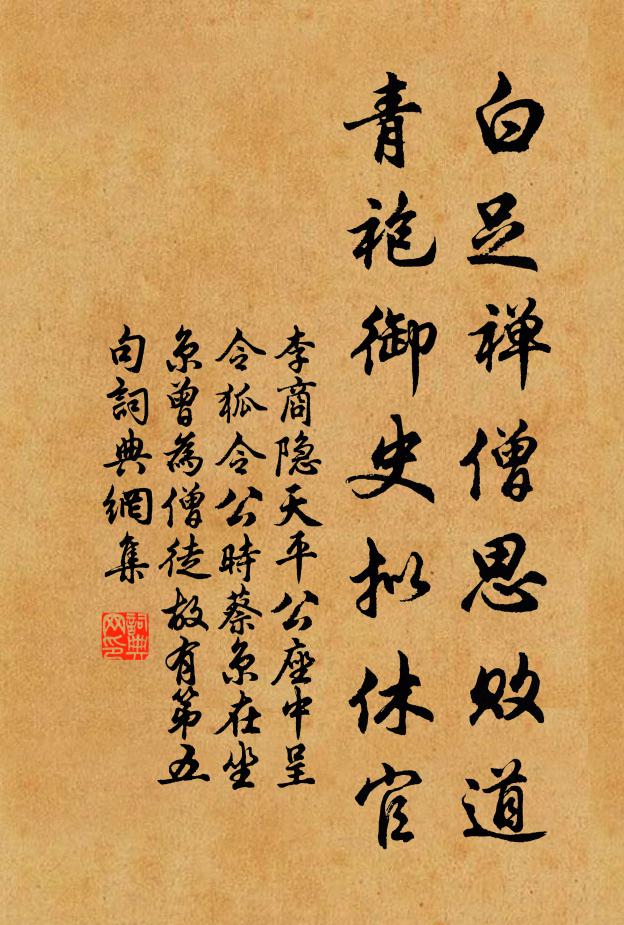 白足禅僧思败道
青袍御史拟休官
李商隐天平公座中呈
令狐令公時蔡京在坐
京曾為僧徒故有第五
句詞典網集
詞典
网印